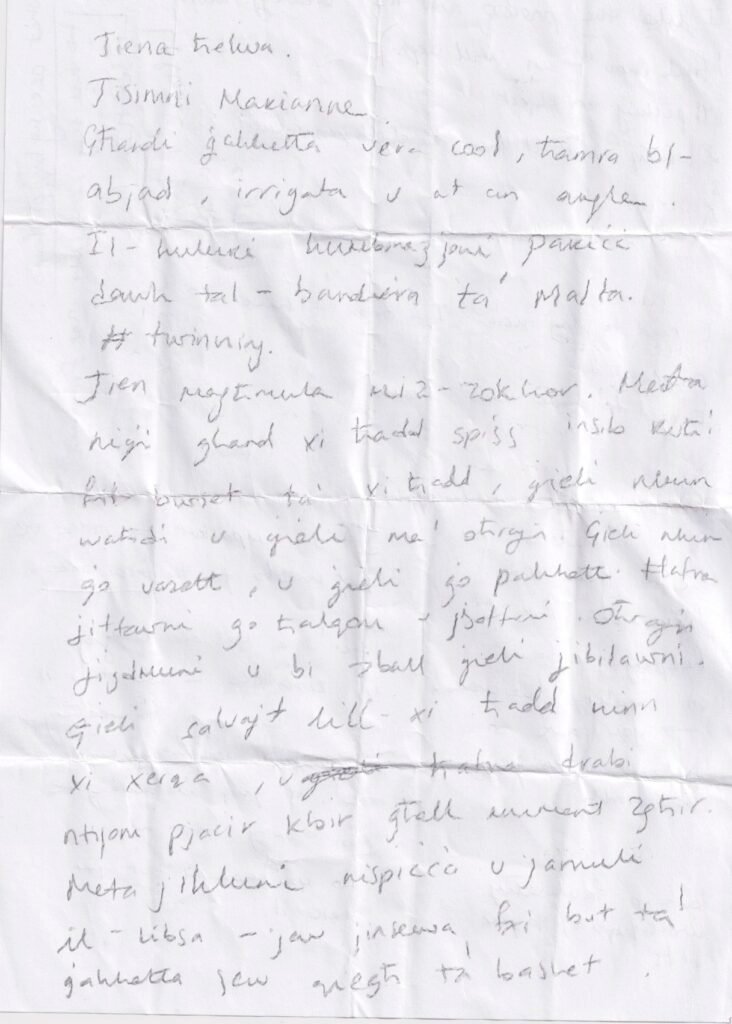 Jiena ħelwa.
Jisimni Marianne.
Għandi ġakketta vera cool, ħamra bl-
abjad, irrigata u at an angle.
Il-kuluri kumbinazjoni pariċċi
dawk tal-bandiera ta' Malta.
# twinning.
Jien magħmula miz-zokkor. Meta
niġi għand xi ħadd spiss insib ruħi
fil-basket ta' xi ħadd, ġieli nkun
waħdi u ġieli ma' oħrajn. Ġieli nkun
go vazett, u ġieli go pakkett. Ħafna
jitfawni go ħalqhom - jbolluni. Oħrajn
jigdmuni u bi żball ġieli jibilawni.
Ġieli salvajt lill-xi ħadd minn
xi xerqa, u drabi
ntijom pjaċir kbir għall mument żgħir.
Meta jikluni nispiċċa u jarmuli
il-libsa - jew jinsewha fxi but ta'
ġakketta jew qiegħ ta' basket.